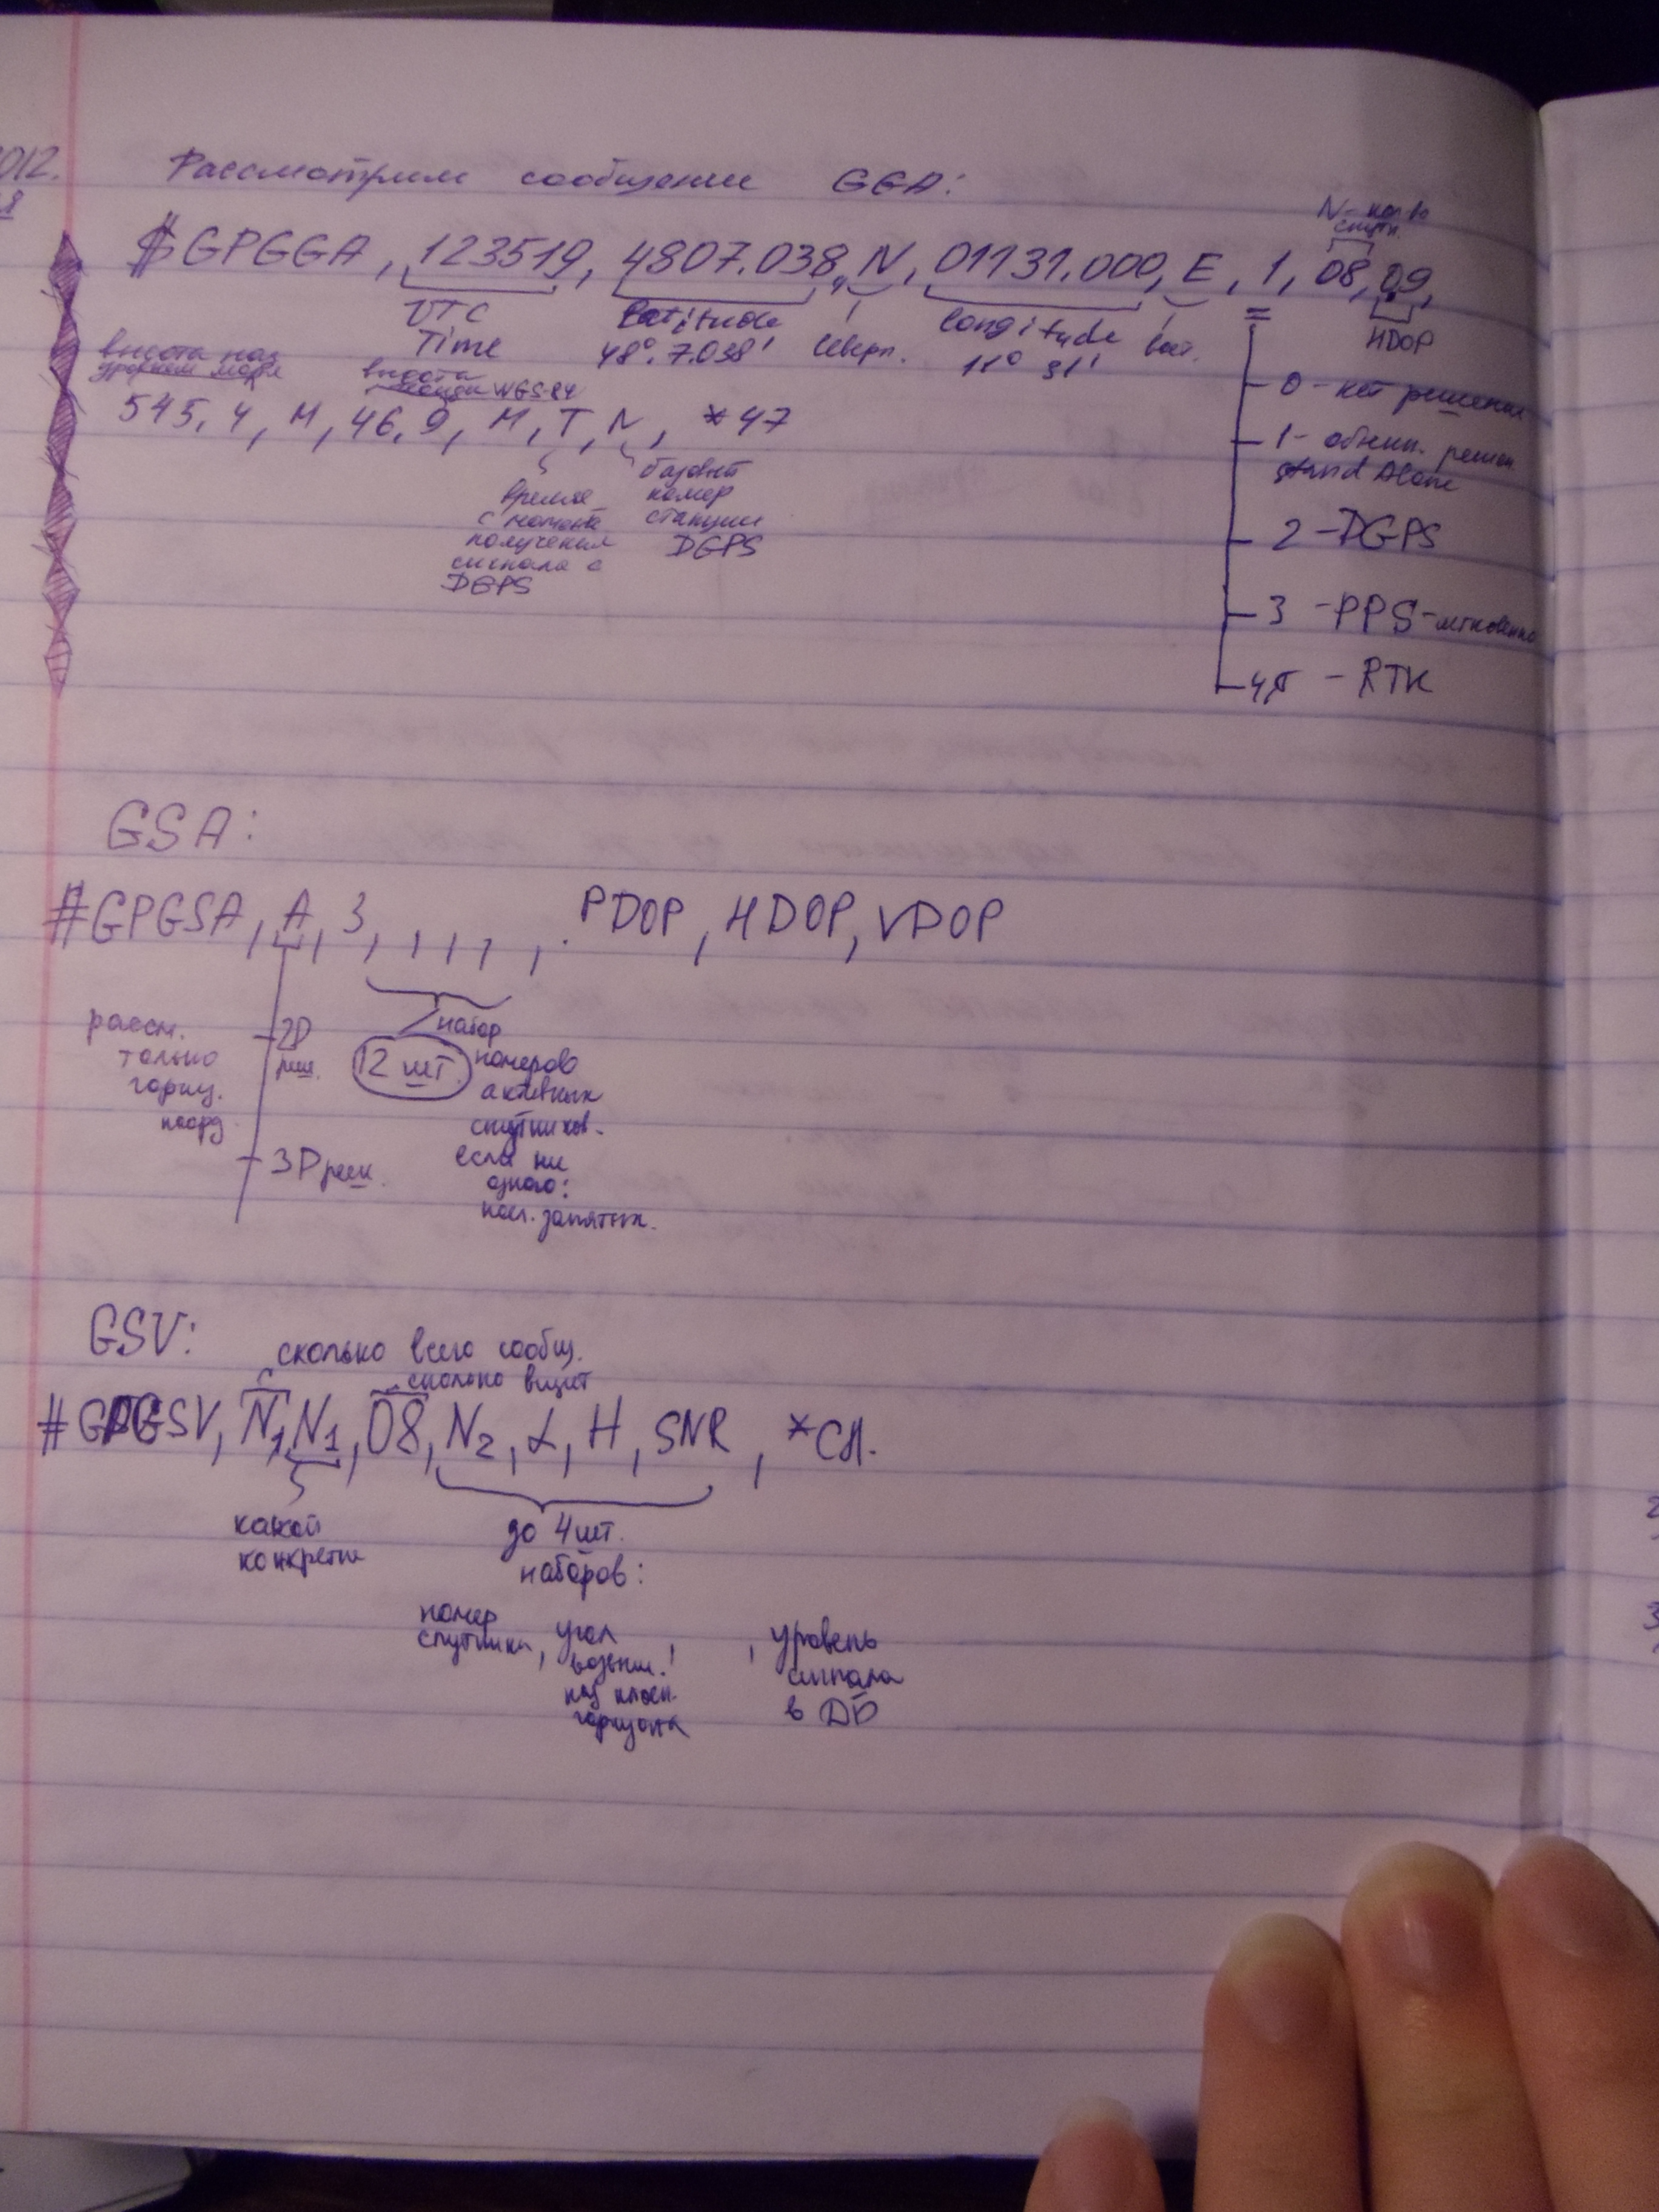 012.
Рассмотрим сообщение GGA:
N - кол-во
спутн.
$GPGGA, 123519, 4807.038, N, 01131.000, E, 1, 08, 0.9,
UTC
Time
Latitude
48° 7.038'
северн.
Longitude
11° 31'
вост.
HDOP
0 - нет решения
1 - решен.
Stand Alone
2 - DGPS
3 - PPS - мгновенно
4,5 - RTK
высота над
уровнем моря
высота
WGS-84
545.4, M, 46.9, M, T, N, *47
время
с момента
получения
сигнала с
DGPS
базовый
номер
станции
DGPS
GSA:
#GPGSA, A, 3, , , , , . PDOP, HDOP, VDOP
рассм.
только
гориз.
коорд
2D
реш.
3D реш.
12 шт.
набор
номеров
активных
спутников.
если ни
одного:
посл. запятых.
GSV:
сколько всего сообщ.
сколько видит
#GPGSV, N, N1, 08, N2, α, H, SNR, *CH.
какой
конкретн
до 4 шт.
наборов:
номер
спутника,
угол
возвыш.
над плоск.
горизонта
,
уровень
сигнала
в Дб